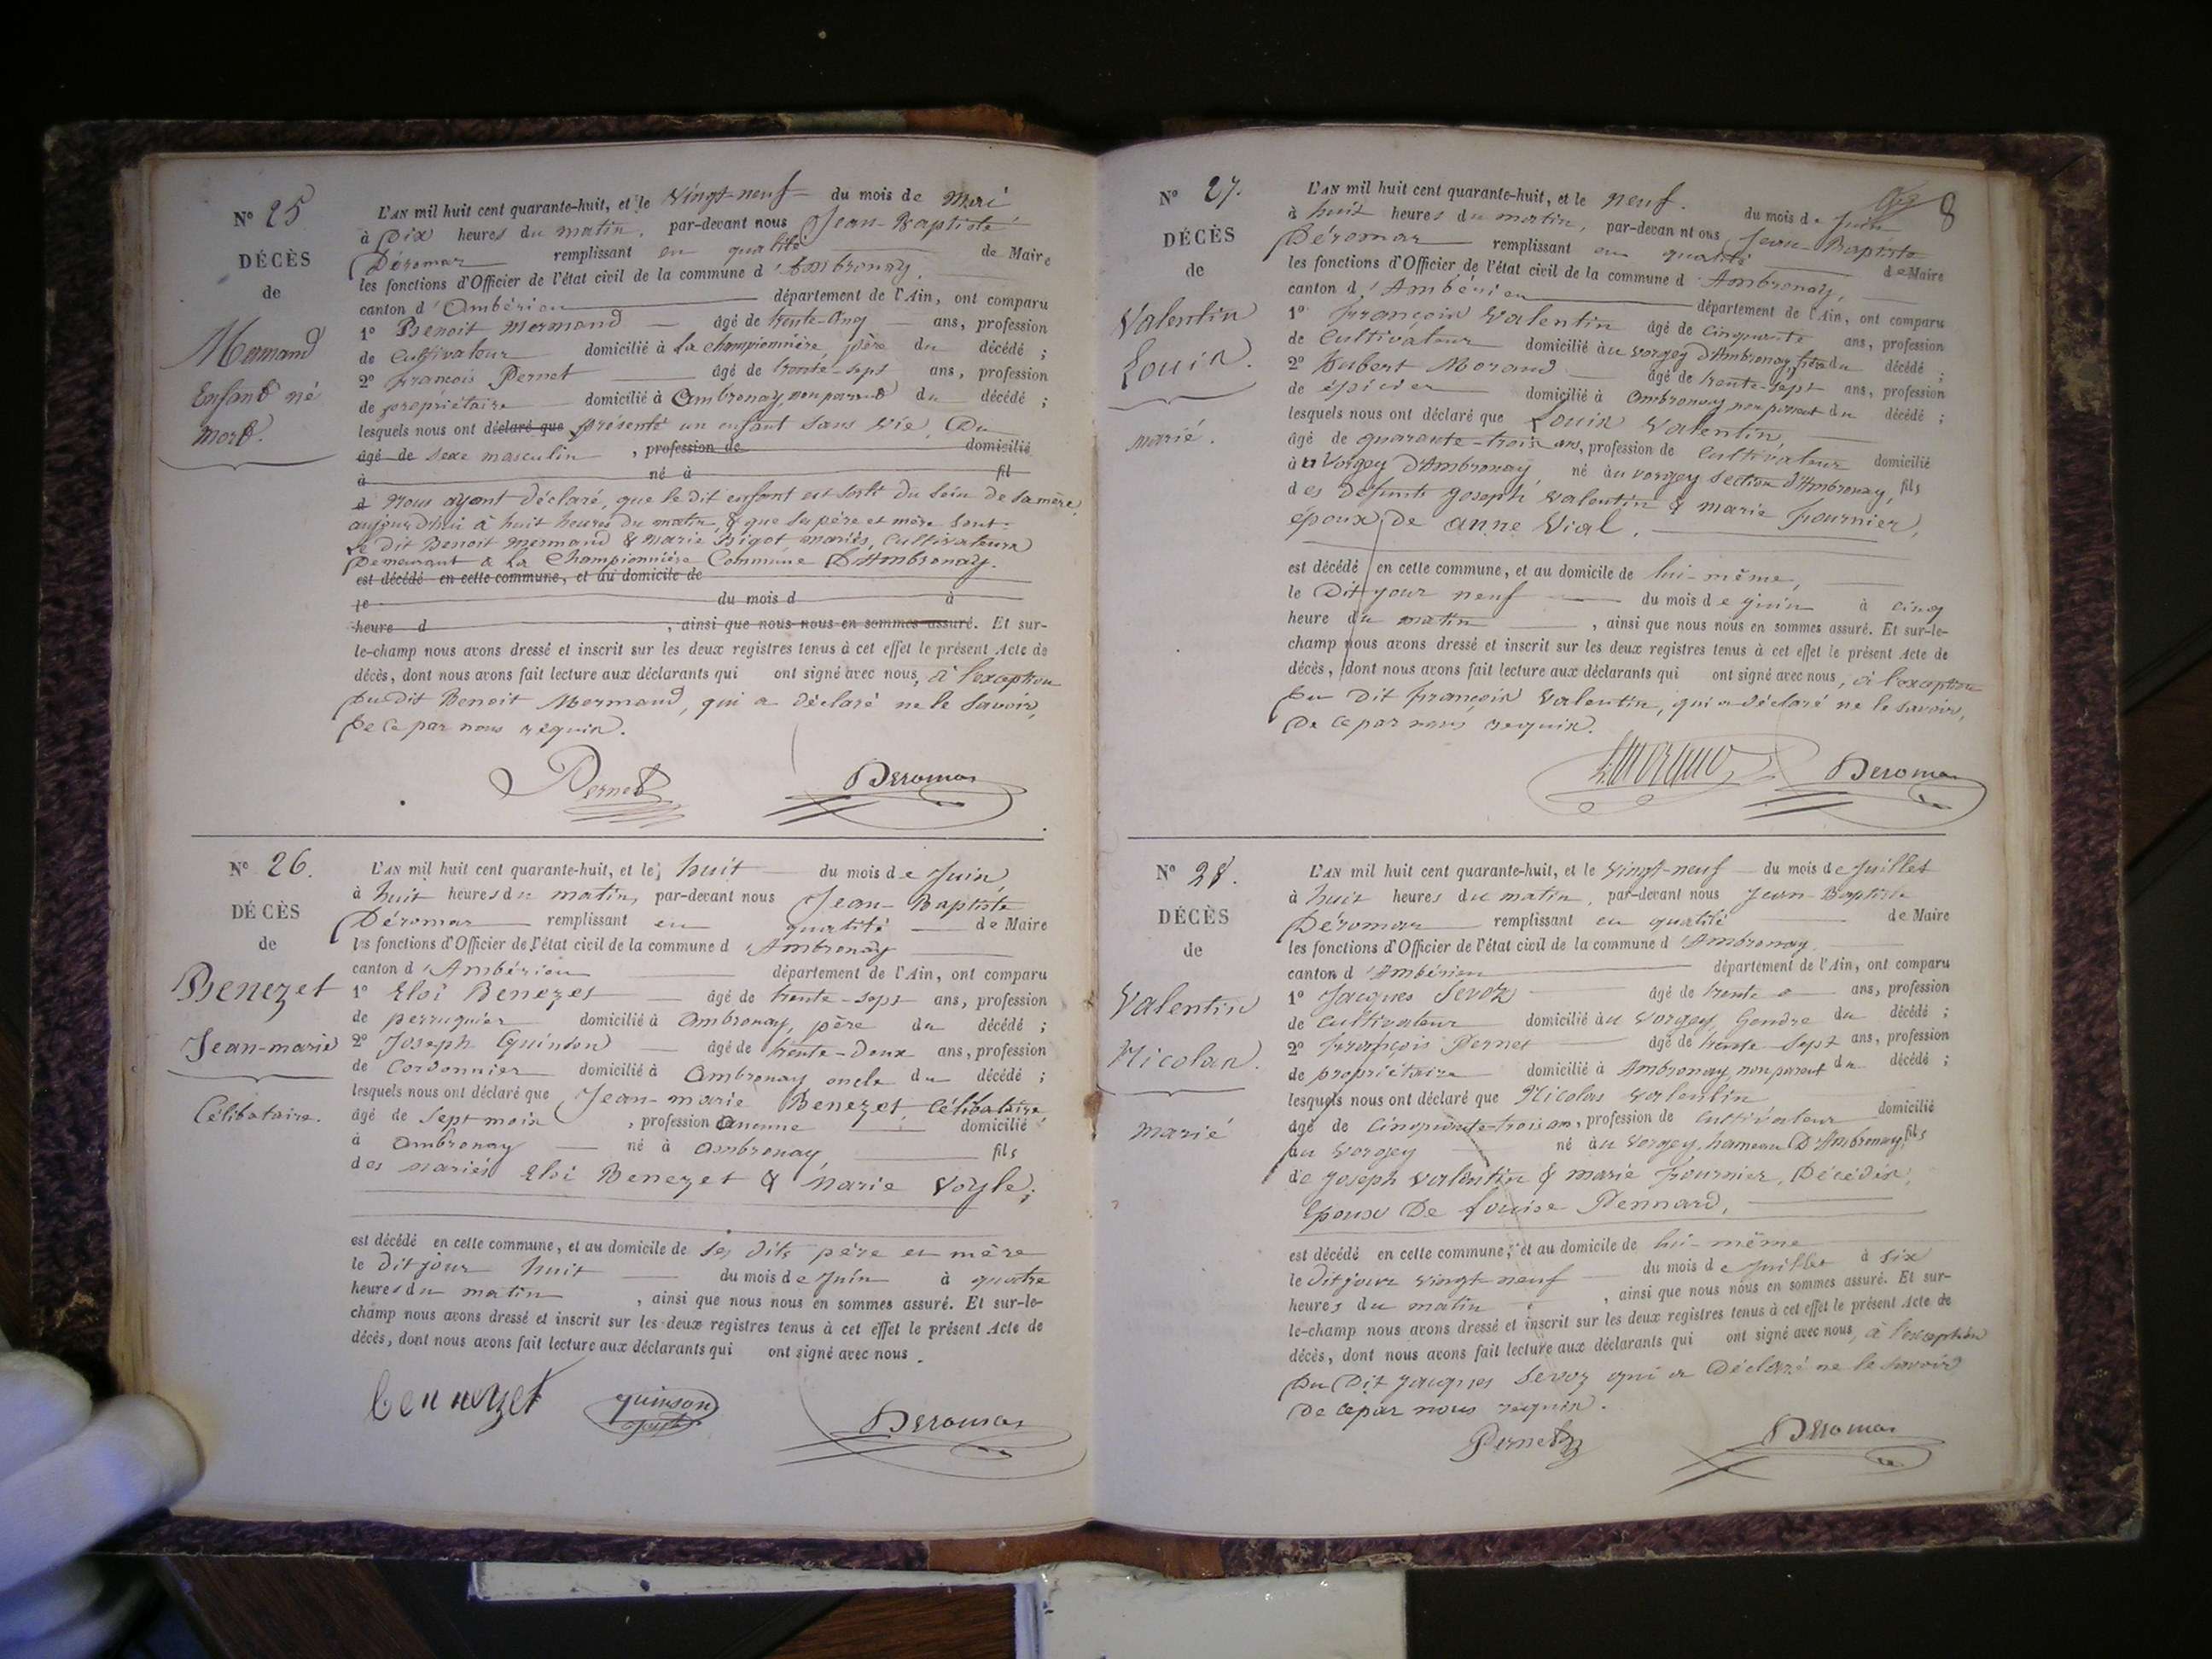 N° 25
DÉCÈS
de
Mermand
Enfant né
mort.
L'AN mil huit cent quarante-huit, et le vingt-neuf du mois de Mai
à Dix heures du matin, par-devant nous Jean-Baptiste
Déromas remplissant en qualité de Maire
les fonctions d'Officier de l'état civil de la commune d'Ambronay,
canton d'Ambérieu département de l'Ain, ont comparu
1° Benoit Mermand âgé de trente-cinq ans, profession
de Cultivateur domicilié à La Championnière, père du décédé ;
2° François Pernet âgé de trente-sept ans, profession
de propriétaire domicilié à Ambronay, non parent du décédé ;
lesquels nous ont déclaré que présenté un enfant sans vie, Du
âgé de sexe masculin , profession de domicilié
à né à fil
d Nous ayant déclaré, que le dit enfant est sorti du sein de sa mère,
aujourd'hui à huit heures du matin, & que ses père et mère sont
Le dit Benoit Mermand & Marie Bigot mariés, Cultivateurs
Demeurant à La Championnière Commune D'Ambronay.
est décédé en cette commune, et au domicile de
le du mois d à
heure d , ainsi que nous nous en sommes assuré. Et sur-
le-champ nous avons dressé et inscrit sur les deux registres tenus à cet effet le présent Acte de
décès, dont nous avons fait lecture aux déclarants qui ont signé avec nous, à l'exception
Du dit Benoit Mermand, qui a déclaré ne le savoir,
De ce par nous requis.
Pernet Deromas
N° 26.
DÉCÈS
de
Benezet
Jean-marie
Célibataire.
L'AN mil huit cent quarante-huit, et le huit du mois de Juin
à huit heures du matin, par-devant nous Jean-Baptiste
Déromas remplissant en qualité de Maire
les fonctions d'Officier de l'état civil de la commune d'Ambronay
canton d'Ambérieu département de l'Ain, ont comparu
1° Eloi Benezet âgé de trente-sept ans, profession
de perruquier domicilié à Ambronay, père du décédé ;
2° Joseph Quinson âgé de trente-Deux ans, profession
de Cordonnier domicilié à Ambronay oncle du décédé ;
lesquels nous ont déclaré que Jean-marie Benezet, Célibataire,
âgé de sept mois , profession aucune domicilié
à Ambronay né à Ambronay, fils
des mariés Eloi Benezet & Marie Voyle ;
est décédé en cette commune, et au domicile de ses dits père et mère
le dit jour huit du mois de Juin à quatre
heures du matin , ainsi que nous nous en sommes assuré. Et sur-le-
champ nous avons dressé et inscrit sur les deux registres tenus à cet effet le présent Acte de
décès, dont nous avons fait lecture aux déclarants qui ont signé avec nous.
bennezet quinson Deromas
8
N° 27.
DÉCÈS
de
Valentin
Louis.
marié.
L'AN mil huit cent quarante-huit, et le neuf. du mois de Juin
à huit heures du matin, par-devan nt ous Jean Baptiste
Déromas remplissant en qualité de Maire
les fonctions d'Officier de l'état civil de la commune d'Ambronay,
canton d'Ambérieu département de l'Ain, ont comparu
1° François Valentin âgé de Cinquante ans, profession
de Cultivateur domicilié au Vorgey D'Ambronay, frère du décédé ;
2° Hubert Morand âgé de trente-sept ans, profession
de épicier domicilié à Ambronay non parent du décédé ;
lesquels nous ont déclaré que Louis Valentin,
âgé de quarante-trois ans, profession de Cultivateur domicilié
au Vorgey D'Ambronay né au vorgey section d'Ambronay, fils
des Défunts Joseph Valentin & marie Fournier,
époux, de anne Vial.
est décédé en cette commune, et au domicile de lui-même,
le Dit jour neuf du mois de juin à cinq
heure du matin , ainsi que nous nous en sommes assuré. Et sur-le-
champ nous avons dressé et inscrit sur les deux registres tenus à cet effet le présent Acte de
décès, dont nous avons fait lecture aux déclarants qui ont signé avec nous, à l'exception
Du Dit François Valentin, qui a déclaré ne le savoir,
De ce par nous requis.
Deromas
N° 28.
DÉCÈS
de
Valentin
Nicolas.
marié
L'AN mil huit cent quarante-huit, et le vingt-neuf du mois de Juillet
à huit heures du matin, par-devant nous Jean-Baptiste
Déromas remplissant en qualité de Maire
les fonctions d'Officier de l'état civil de la commune d'Ambronay.
canton d'Ambérieu département de l'Ain, ont comparu
1° Jacques Sevoz âgé de trente ans, profession
de Cultivateur domicilié au Vorgey, Gendre du décédé ;
2° François Pernet âgé de trente-sept ans, profession
de propriétaire domicilié à Ambronay, non parent du décédé ;
lesquels nous ont déclaré que Nicolas Valentin
âgé de Cinquante-trois ans, profession de Cultivateur domicilié
au Vorgey né au Vorgey, hameau D'Ambronay, fils
de Joseph Valentin & marie Fournier, Décédés,
époux De Louise Pennard,
est décédé en cette commune, et au domicile de lui-même
le Dit jour vingt neuf du mois de juillet à six
heures du matin , ainsi que nous nous en sommes assuré. Et sur-
le-champ nous avons dressé et inscrit sur les deux registres tenus à cet effet le présent Acte de
décès, dont nous avons fait lecture aux déclarants qui ont signé avec nous, à l'exception
Du Dit Jacques Sevoz qui a Déclaré ne le savoir
De ce par nous requis.
Pernet Deromas